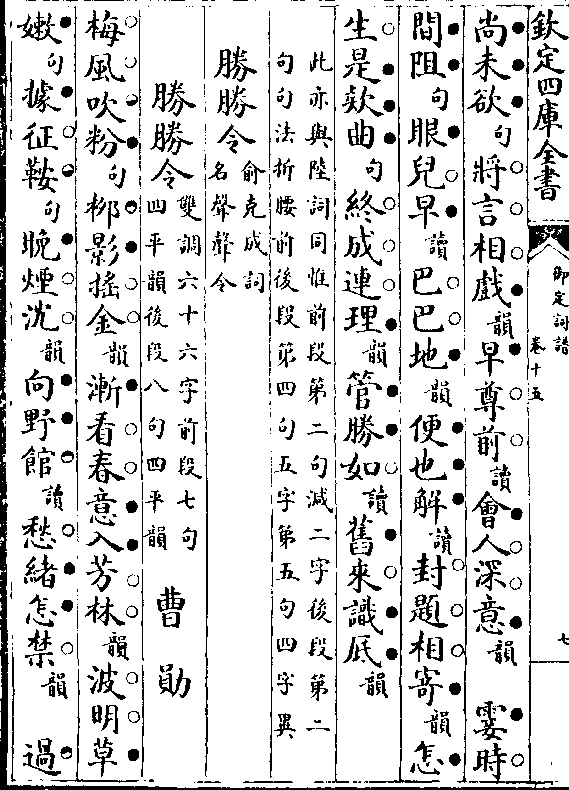 欽定四庫全書
御定詞譜
卷十五
七
尚未欲句將言相戲韻早尊前讀會人深意韻　霎時
間阻句眼兒早讀巴巴地韻便也解讀封題相寄韻怎
生是欵曲句終成連理韻管勝如讀舊來識底韻
此亦與陸詞同惟前段第二句減二字後段第二
句句法折腰前後段第四句五字第五句四字異
勝勝令俞克成詞
名聲聲令
勝勝令雙調六十六字前段七句
四平韻後段八句四平韻
曹勛
梅風吹粉句柳影搖金韻漸看春意入芳林韻波明草
嫩句據征鞍句晚煙沈韻向野館讀愁緒怎禁韻　過